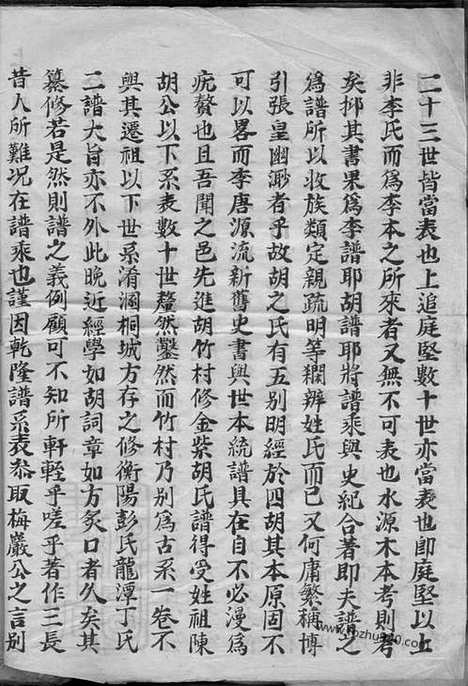 二十三世皆當表也上追庭堅數十世亦當表也卽庭堅以上
非李氏而爲李本之所來者又無不可表也水源木本考則考
矣抑其書果爲李譜耶胡譜耶將譜乘與史紀合著卽夫譜之
爲譜所以收族類定親疏明等襴辨姓氏而已又何庸繁稱博
引張皇幽渺者乎故胡之氏有五别明經於四胡其本原固不
可以畧而李唐源流新舊史書與世本統譜具在自不必漫爲
疣贅也且吾聞之邑先進胡竹村修金紫胡氏譜得受姓祖陳
胡公以下系表數十世釐然鑿然而竹村乃别爲古系一卷不
與其遷祖以下世系淆溷桐城方存之修衡陽彭氏龍潭丁氏
二譜大旨亦不外此晚近經學如胡詞章如方炙口者久矣其
纂修若是然則譜之義例顧可不知所軒輊乎嗟乎著作三長
昔人所難况在譜乘也謹因乾隆譜系表叅取梅巖公之言别